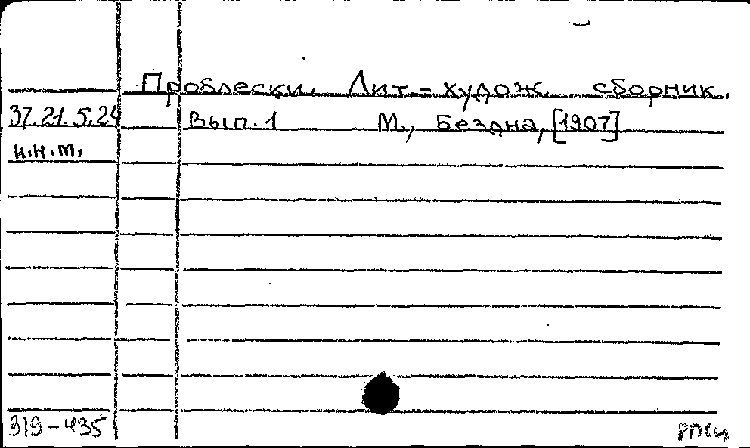 Проблески. Лит.-худож. сборник.
37.21.5.24
Вып. 1 М., Бездна, [1907]
н.н.т.
319-435